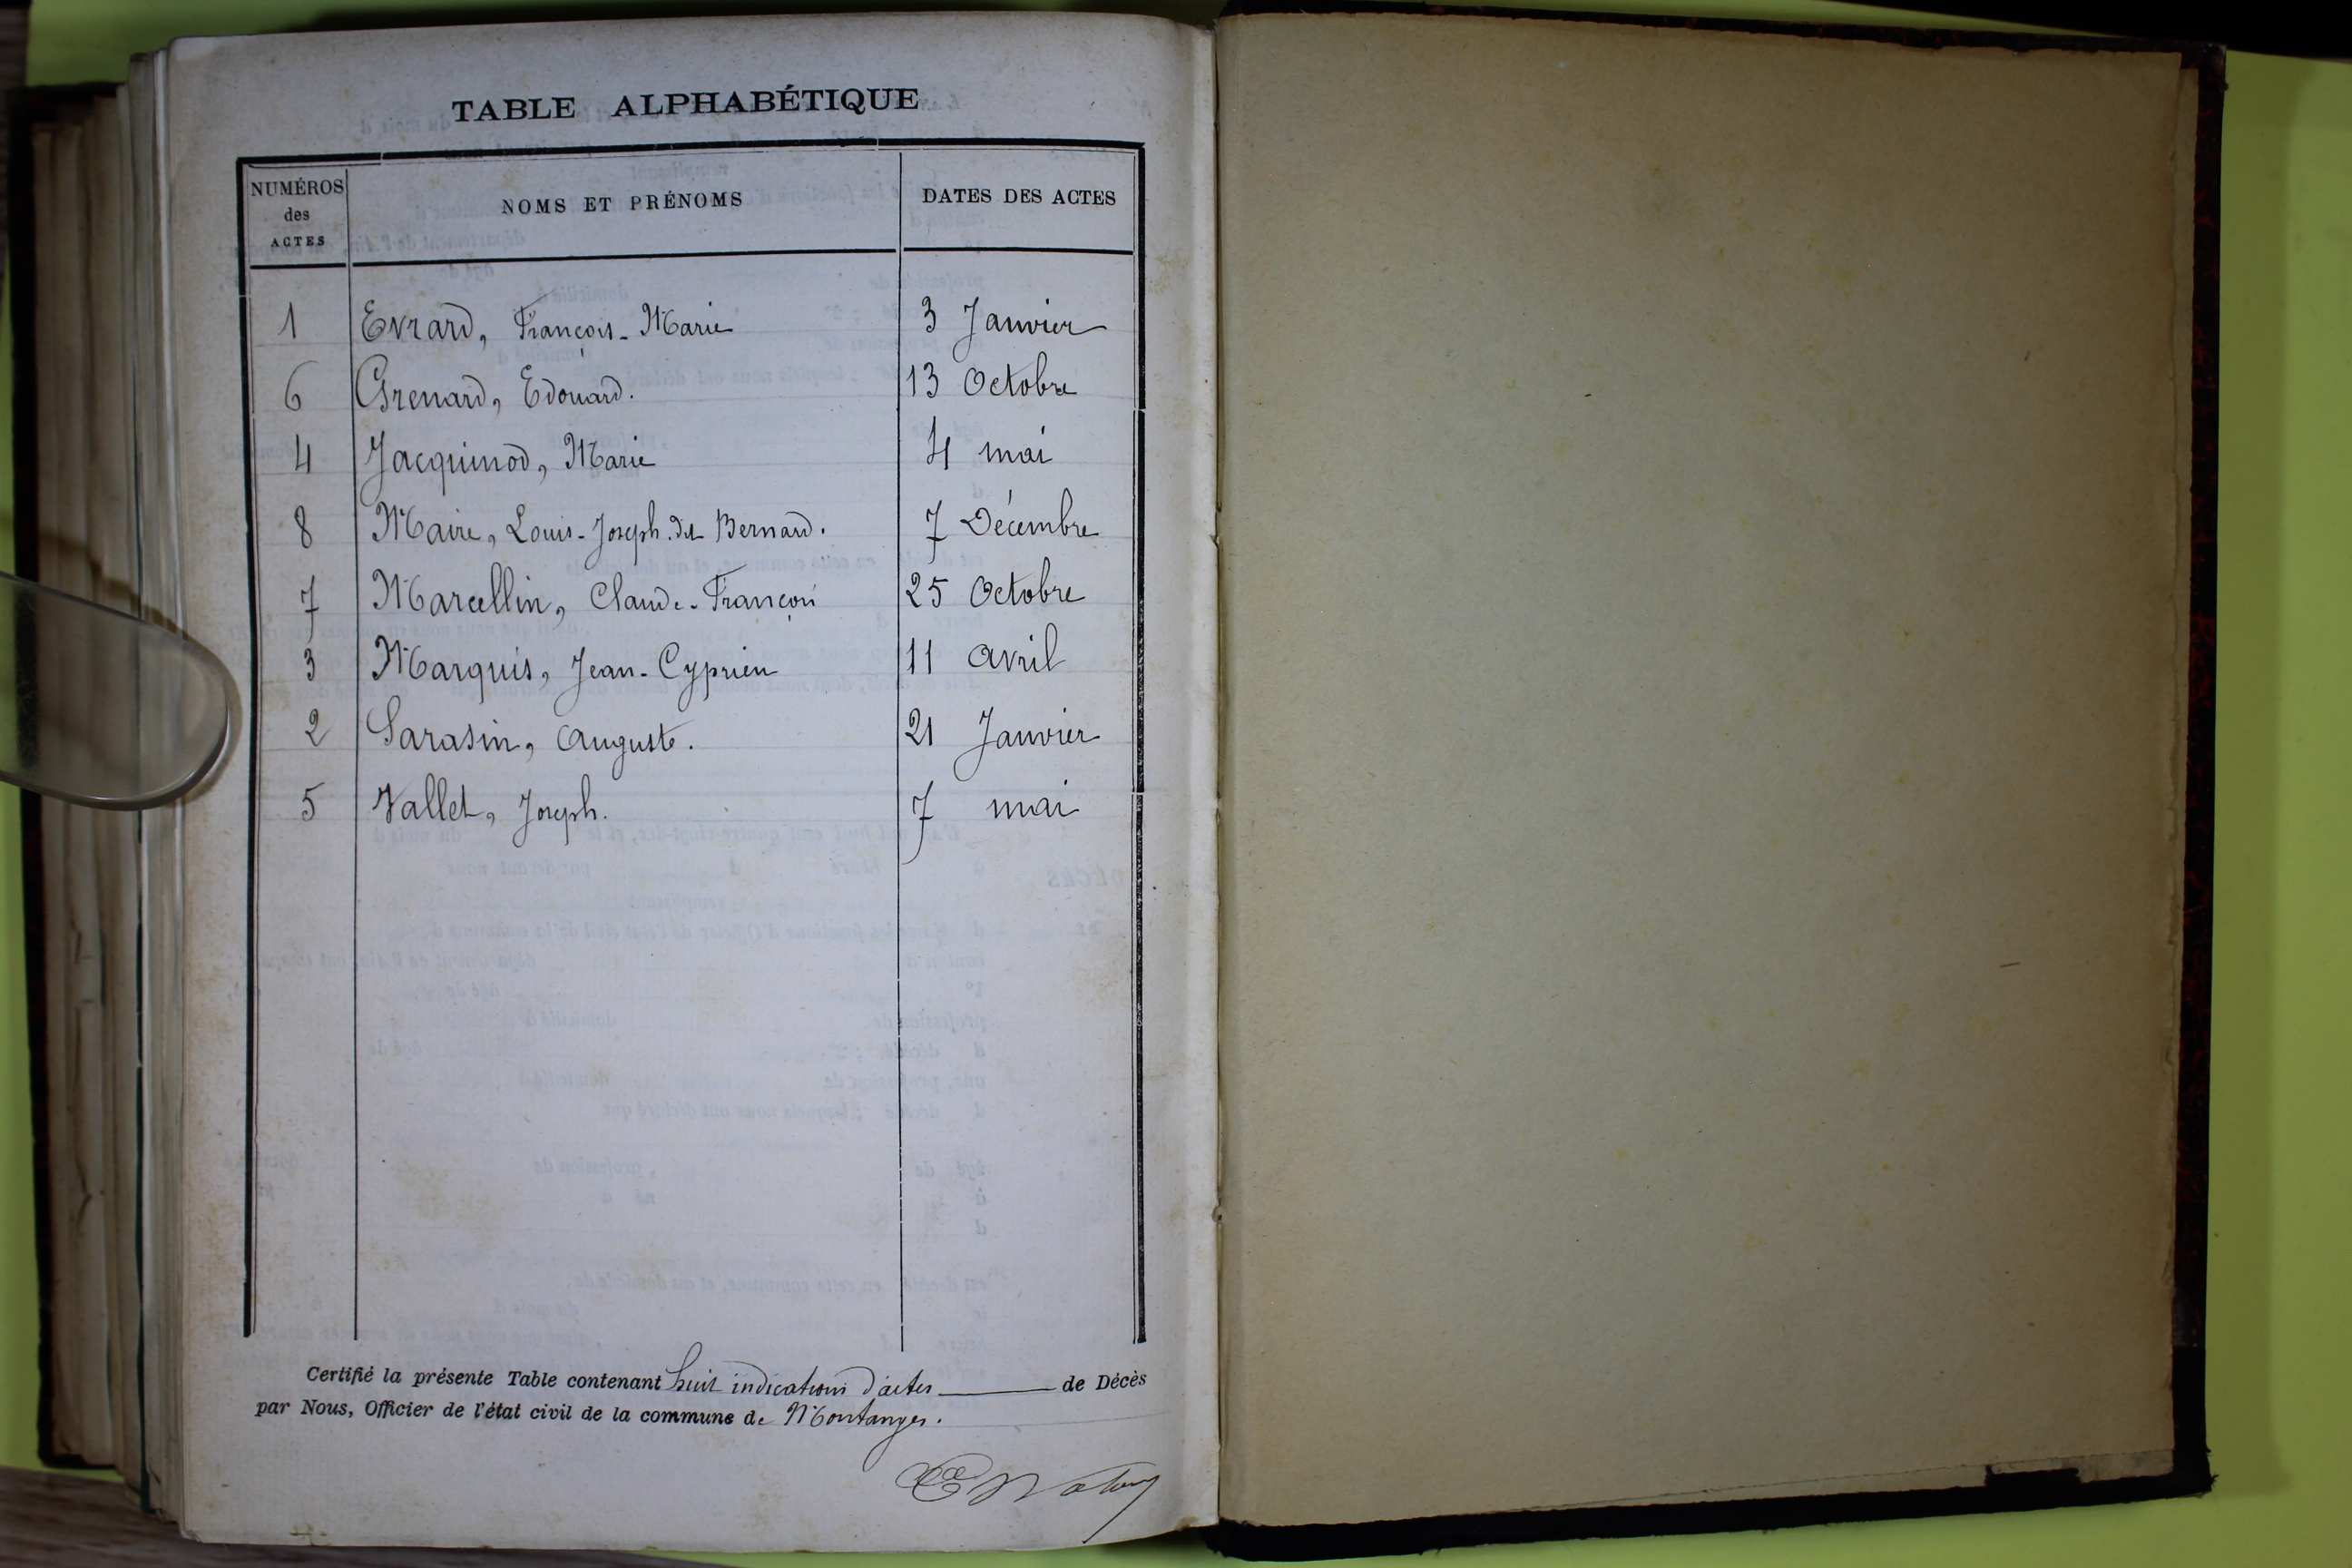 TABLE ALPHABÉTIQUE
NUMÉROS des ACTES NOMS ET PRÉNOMS DATES DES ACTES
1 Evrard, François-Marie 3 Janvier
6 Grenard, Edouard. 13 Octobre
4 Jacquinod, Marie 4 mai
8 Maire, Louis-Joseph. dit Bernard. 7 Décembre
7 Marcellin, Claude-François 25 Octobre
3 Marquis, Jean-Cyprien 11 avril
2 Sarasin, Auguste. 21 Janvier
5 Vallet, Joseph. 7 mai
Certifié la présente Table contenant huit indications d'actes de Décès
par Nous, Officier de l'état civil de la commune de Montanges.